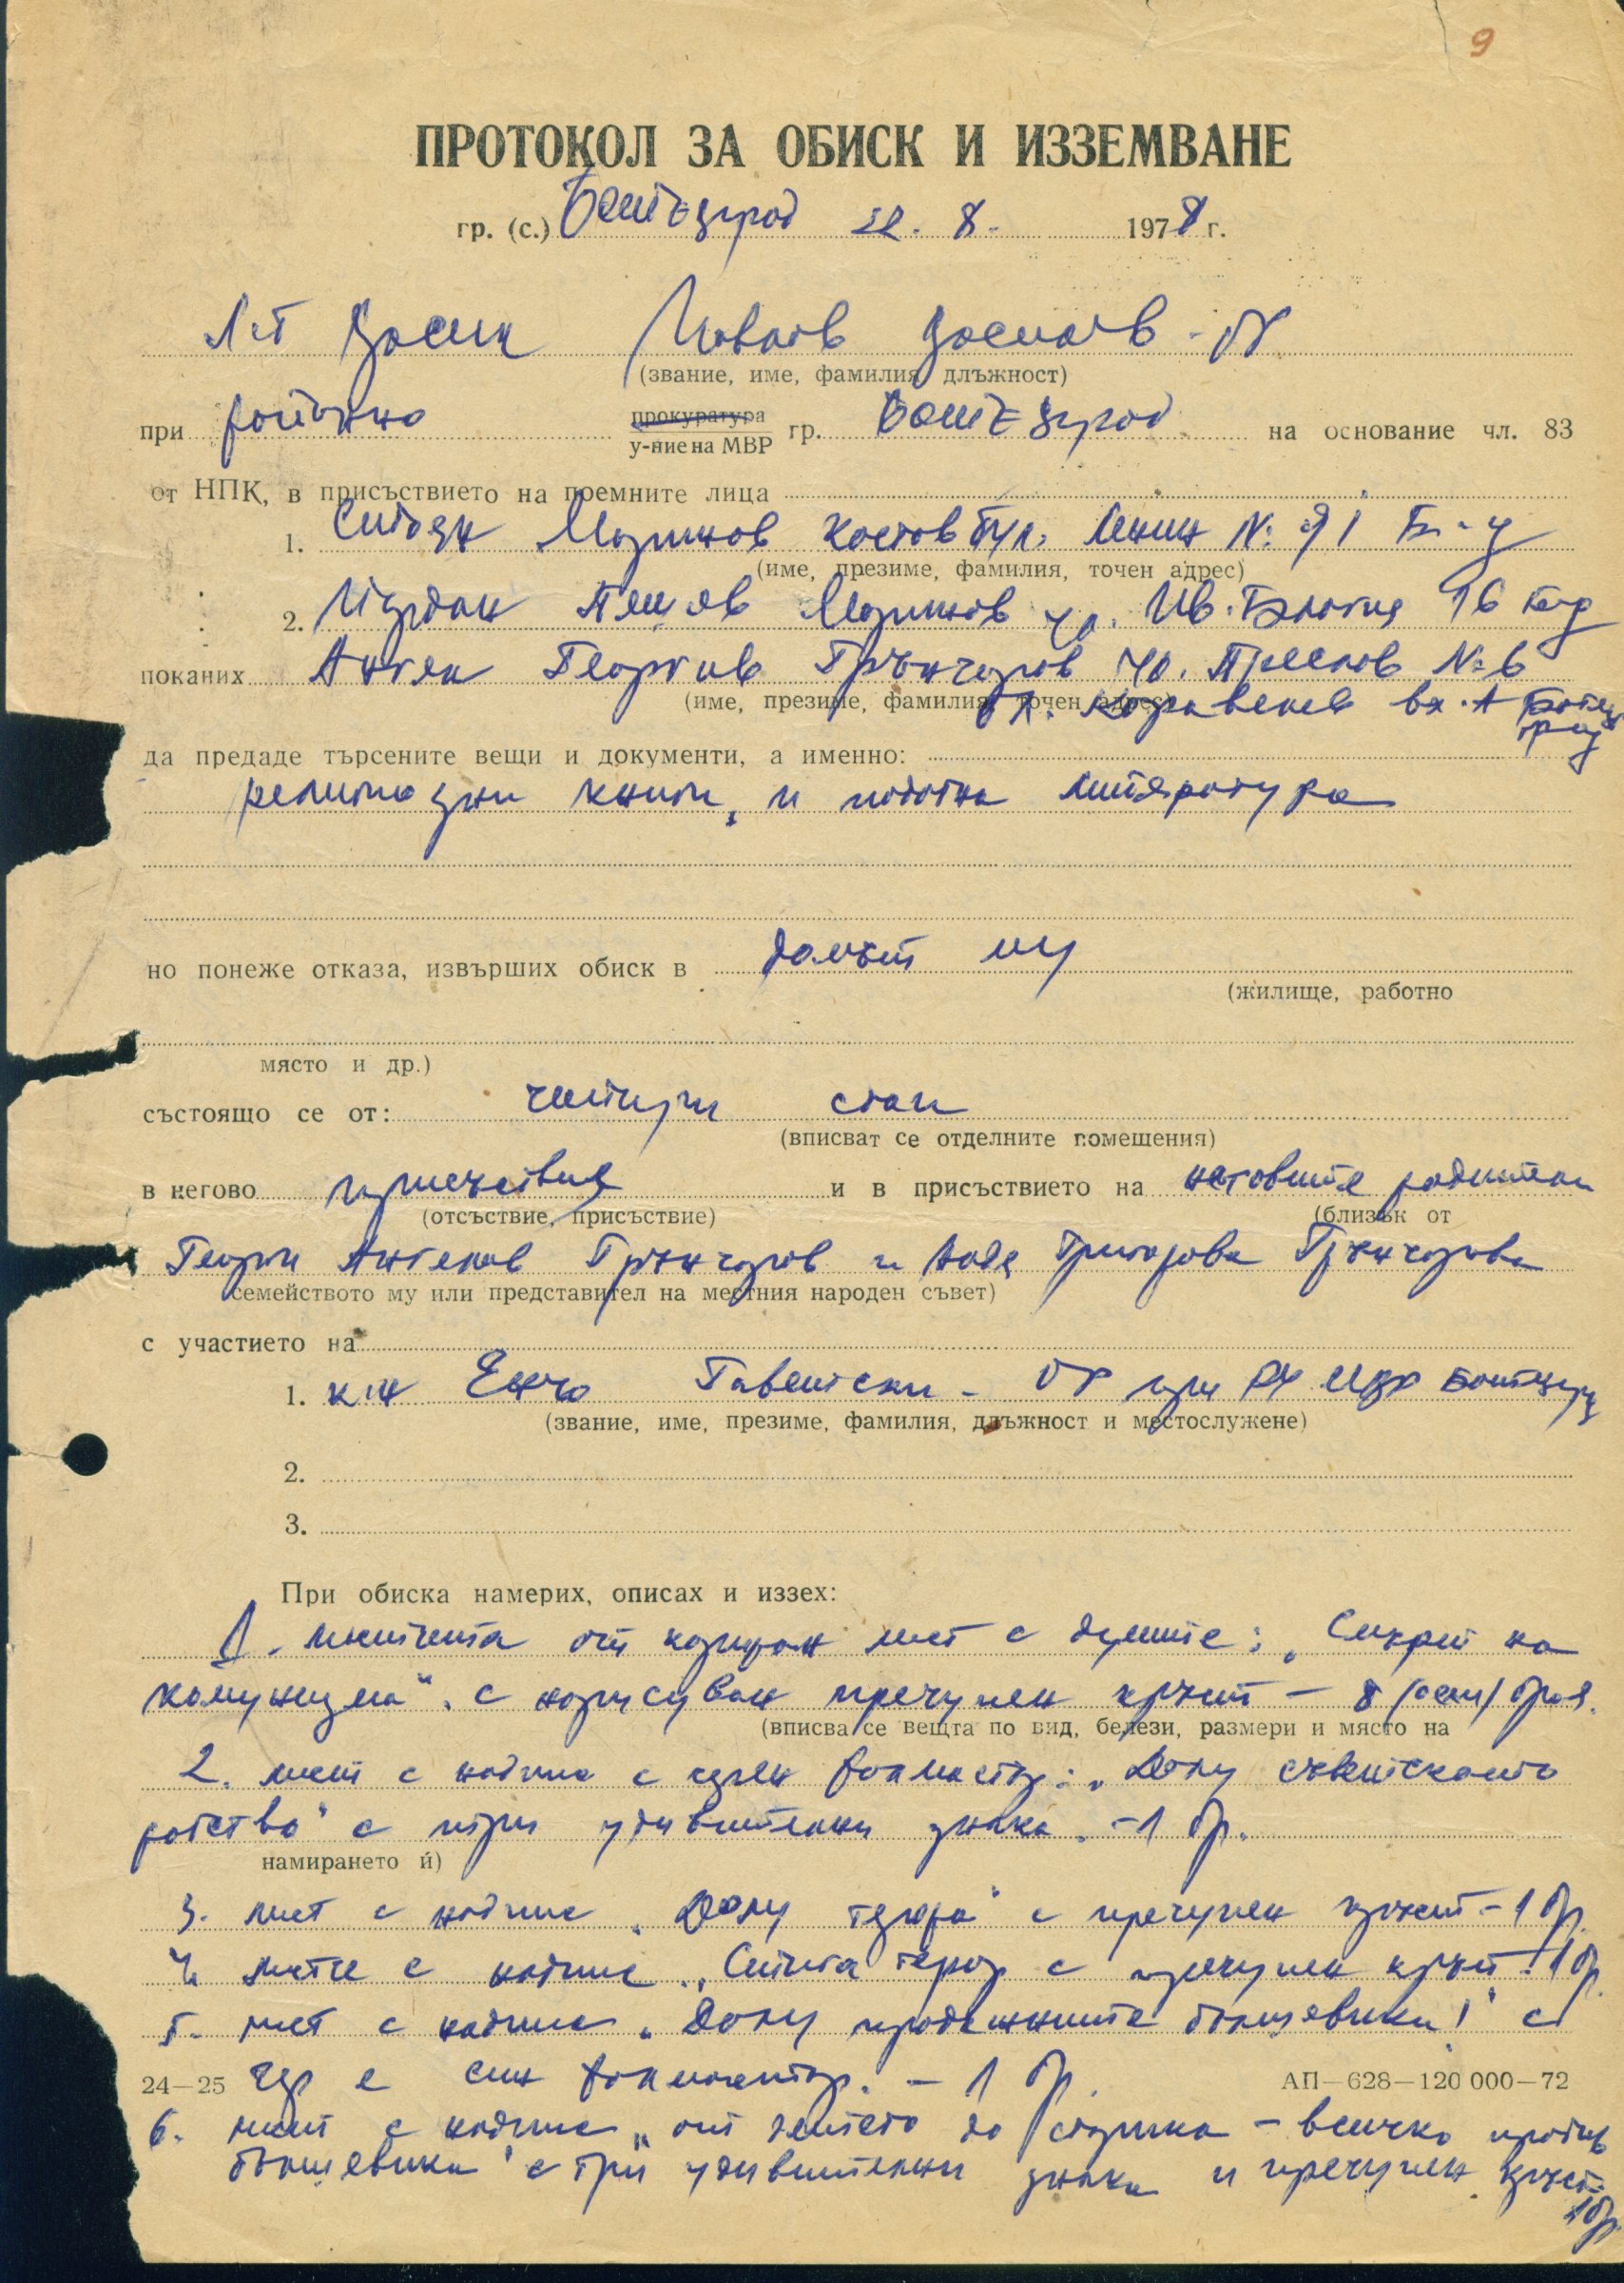 9
ПРОТОКОЛ ЗА ОБИСК И ИЗЗЕМВАНЕ
гр. (с.) Ботевград 22. 8. 1978 г.
Л-т Иванов
(звание, име, фамилия, длъжност)
при районно прокуратура
у-ние на МВР гр. Ботевград на основание чл. 83
от НПК, в присъствието на поемните лица
1. Стоян Маринов Костов бул. Ленин № 91 Б-д
(име, презиме, фамилия, точен адрес)
2. Йордан Пешов Маринов ул. Ив. 16
поканих Ангел Георгиев Грънчаров ул. Преслав № 6
(име, презиме, фамилия, точен адрес)
бл. Каравелов вх. А Ботевград
да предаде търсените вещи и документи, а именно:
религиозни книги, и подобна литература
но понеже отказа, извърших обиск в домът му
(жилище, работно
място и др.)
състоящо се от: четири стаи
(вписват се отделните помещения)
в негово присъствие и в присъствието на неговите родители
(отсъствие, присъствие)
(близък от
Георги Ангелов Грънчаров и Григорова Грънчарова
семейството му или представител на местния народен съвет)
с участието на
1. к-н Енчо Гавентски - ОР при РУ МВР Ботевград
(звание, име, презиме, фамилия, длъжност и местослужене)
2.
3.
При обиска намерих, описах и иззех:
1. листчета от кариран лист с думите: „Смърт на
комунизма" с нарисуван пречупен кръст - 8 /осем/ броя.
(вписва се вещта по вид, белези, размери и място на
2. лист с надпис с червен флумастер: „Долу съветското
робство" с три удивителни знака. - 1 бр.
намирането ѝ)
3. лист с надпис „Долу терора" с пречупен кръст - 1 бр.
4. листче с надпис „Стига терор с пречупен кръст - 1 бр.
5. лист с надпис „Долу продажните болшевики!" с
24—25 син флумастер. - 1 бр.
АП—628—120 000—72
6. лист с надпис „от детето до старика - всичко против
болшевика" с три удивителни знака и пречупен кръст -
1 бр.